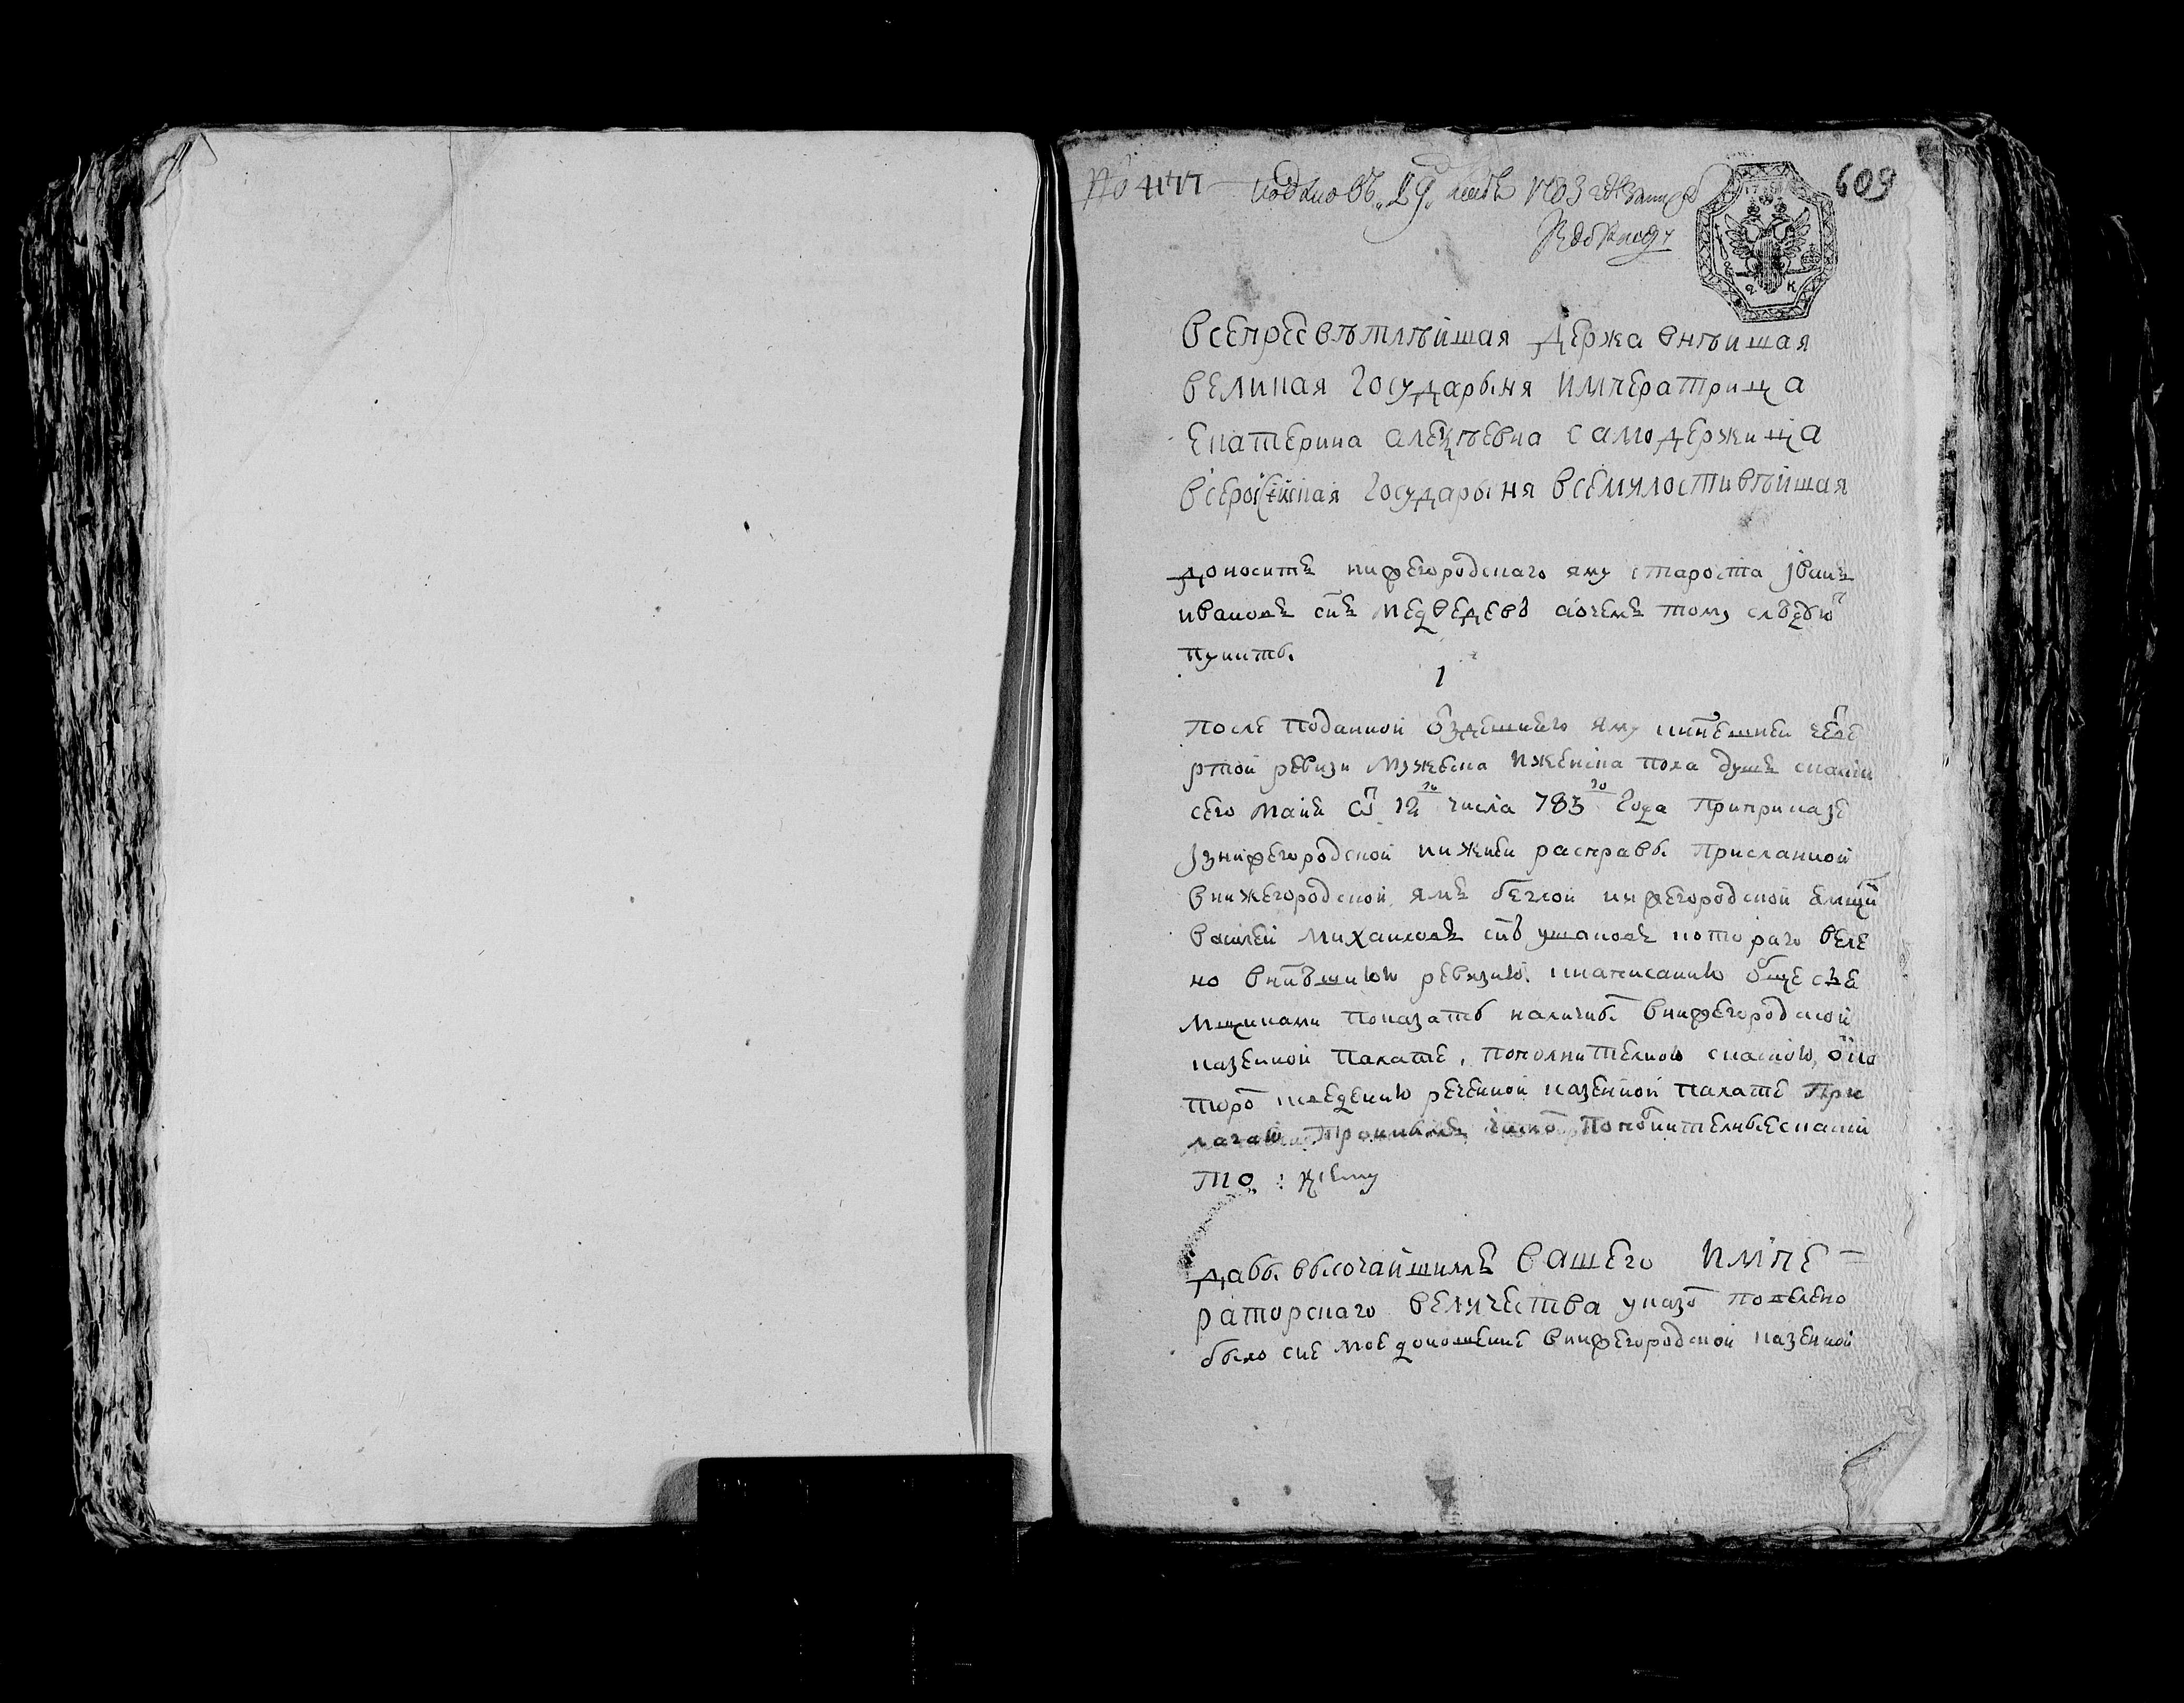 № 477 подано въ 29 1783
609
всепресвѣтлѣйшая державнѣйшая
великая государыня императрица
екатерина алеѯѣевна самодержица
всеросїйская государыня всемилостивѣйшая
доноситъ нижегородскаго яму староста іванъ
ивановъ снъ медведевъ а о чемъ тому слѣдую
пункты
1
после поданной о здешнего яму ннешнеи четве
ртой ревизи мужеска и женска пола душъ скаски
сего маия 12го числа 783го года при приказе
із нижегородской нижней расправы присланной
в нижегородской ямъ беглой нижегородской ямщи
василей михаиловъ снъ ушаковъ котораго веле
но в ннѣшнюю ревизию к написанию обще съ я
мщиками показать в нижегородской
казенной палате, пополнителною скаскою, о ко
торо к сведению реченной казенной палате при
лагаю пополнителные скаски
то : к сему
дабы высочайшимъ вашего импе=
раторскаго величества указо повелено
было сие мое доношение в нижегородской казенной